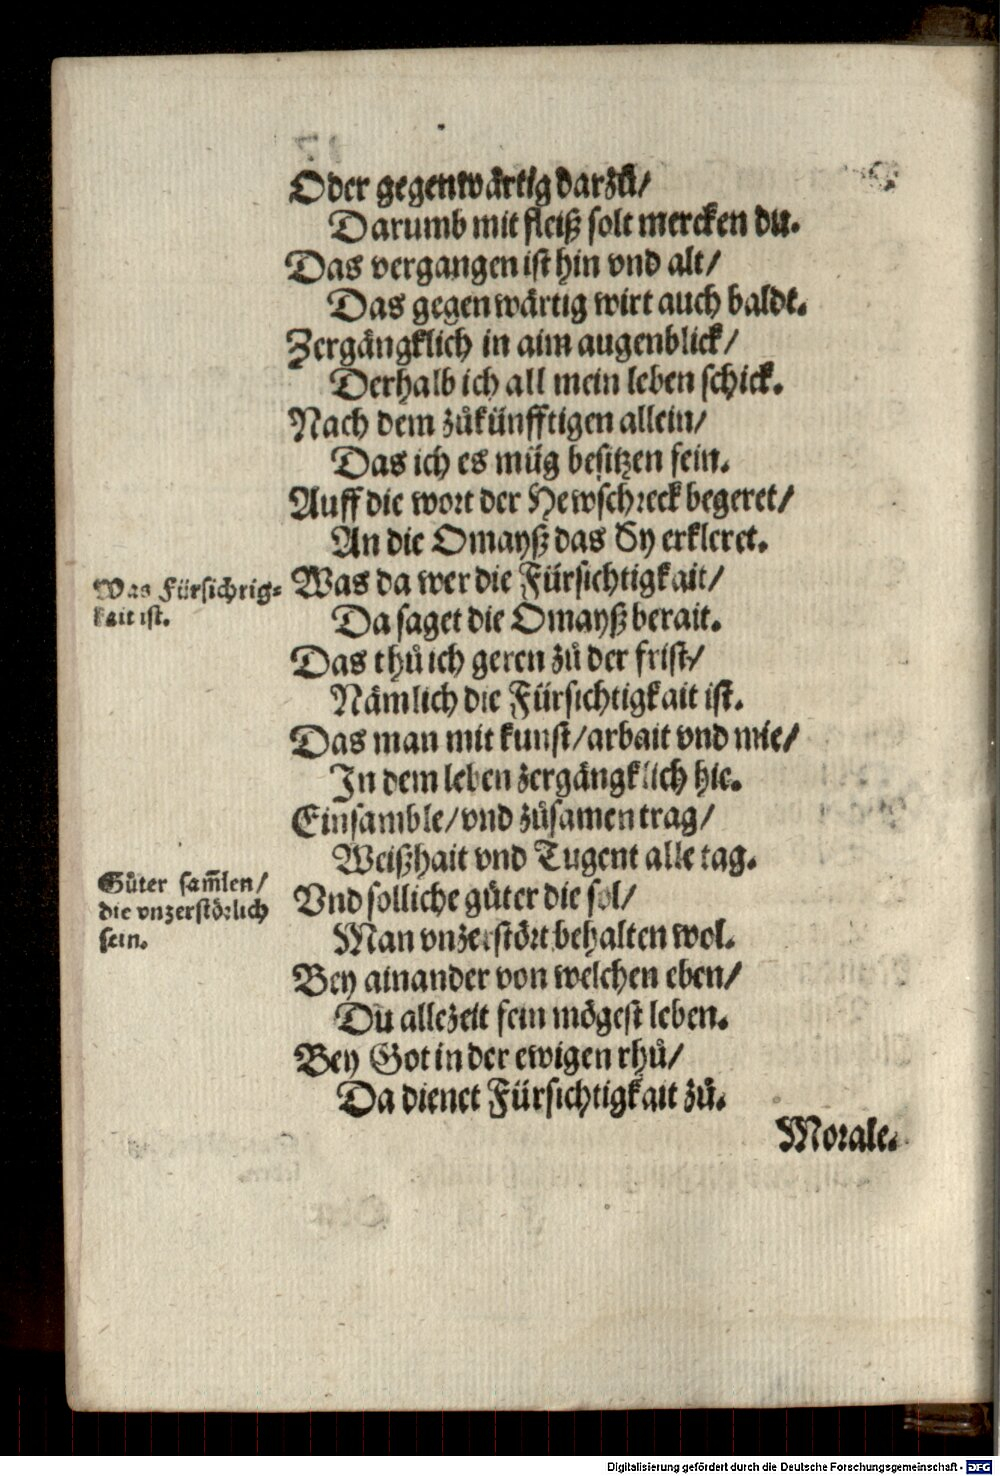 Oder gegenwärtig darzů/
Darumb mit fleiß solt mercken du.
Das vergangen ist hin vnd alt/
Das gegenwärtig wirt auch baldt.
Zergängklich in aim augenblick/
Derhalb ich all mein leben schick.
Nach dem zůkünfftigen allein/
Das ich es müg besitzen fein.
Auff die wort der Hewschreck begeret/
An die Omayß das Sy erkleret.
Was Fürsichtig-
kait ist.
Was da wer die Fürsichtigkait/
Da saget die Omayß berait.
Das thů ich geren zů der frist/
Nämlich die Fürsichtigkait ist.
Das man mit kunst/arbait vnd mie/
In dem leben zergängklich hie.
Einsamble/vnd zůsamen trag/
Weißhait vnd Tugent alle tag.
Gůter sam̃len/
die vnzerstörlich
sein.
Vnd solliche gůter die sol/
Man vnzerstört behalten wol.
Bey ainander von welchen eben/
Du allezeit fein mögest leben.
Bey Got in der ewigen rhů/
Da dienet Fürsichtigkait zů.
Morale.
Digitalisierung gefördert durch die Deutsche Forschungsgemeinschaft - DFG